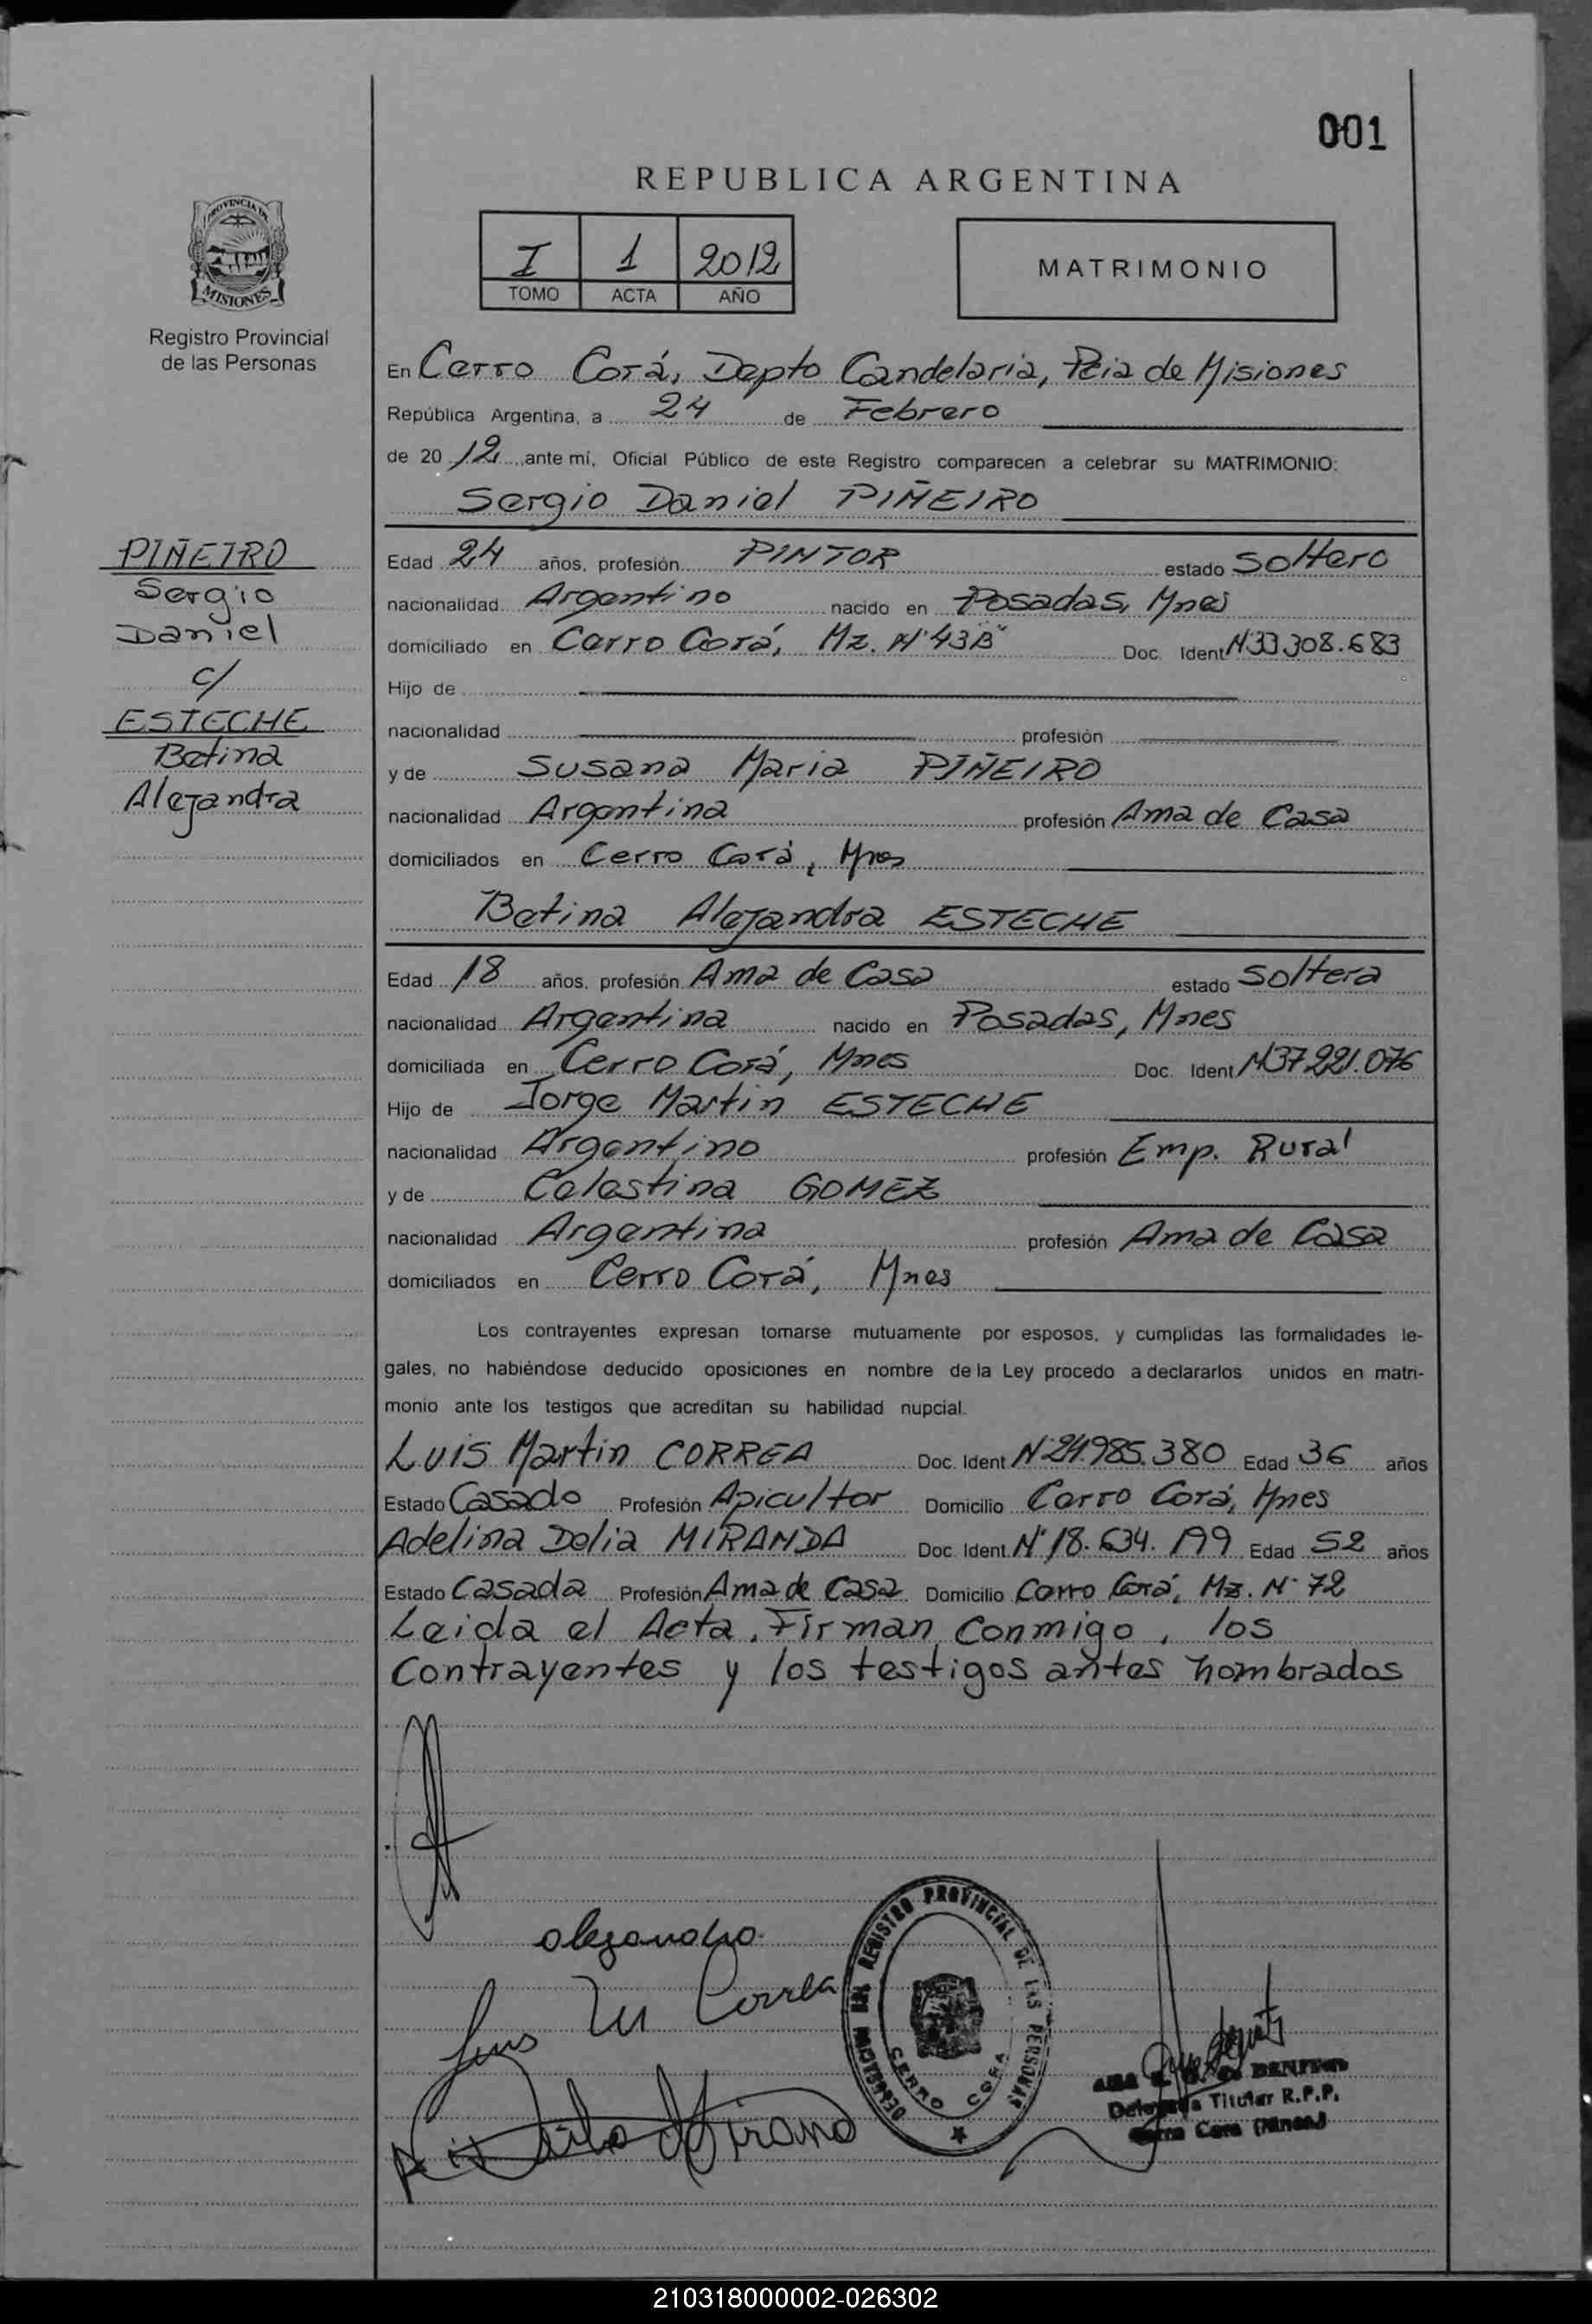 001
REPUBLICA ARGENTINA
PROVINCIA DE
MISIONES
Registro Provincial
de las Personas
I 1 2012
TOMO ACTA AÑO
MATRIMONIO
En Cerro Corá, Depto Candelaria, Pcia de Misiones
República Argentina, a 24 de Febrero
de 20 12 ante mí, Oficial Público de este Registro comparecen a celebrar su MATRIMONIO:
Sergio Daniel PIÑEIRO
PIÑEIRO
Sergio
Daniel
c/
ESTECHE
Betina
Alejandra
Edad 24 años, profesión PINTOR estado Soltero
nacionalidad Argentino nacido en Posadas, Mnes
domiciliado en Cerro Corá, Mz. Nº 43 "B" Doc. Ident Nº 33.308.683
Hijo de
nacionalidad profesión
y de Susana Maria PIÑEIRO
nacionalidad Argentina profesión Ama de Casa
domiciliados en Cerro Corá, Mnes
Betina Alejandra ESTECHE
Edad 18 años, profesión Ama de Casa estado Soltera
nacionalidad Argentina nacido en Posadas, Mnes
domiciliada en Cerro Corá, Mnes Doc. Ident Nº 37.221.076
Hijo de Jorge Martin ESTECHE
nacionalidad Argentino profesión Emp. Rural
y de Celestina GOMEZ
nacionalidad Argentina profesión Ama de Casa
domiciliados en Cerro Corá, Mnes
Los contrayentes expresan tomarse mutuamente por esposos, y cumplidas las formalidades le-
gales, no habiéndose deducido oposiciones en nombre de la Ley procedo a declararlos unidos en matri-
monio ante los testigos que acreditan su habilidad nupcial.
Luis Martin CORREA Doc. Ident Nº 24.985.380 Edad 36 años
Estado Casado Profesión Apicultor Domicilio Cerro Corá, Mnes
Adelina Delia MIRANDA Doc. Ident. Nº 18.634.199 Edad 52 años
Estado Casada Profesión Ama de Casa Domicilio Cerro Corá, Mz. Nº 72
Leida el Acta, Firman Conmigo, los
Contrayentes y los testigos antes nombrados
Luis M Correa
REGISTRO PROVINCIAL DE LAS PERSONAS
CERRO CORA
Delegada Titular R.P.P.
Cerro Cora (Mnes.)
210318000002-026302